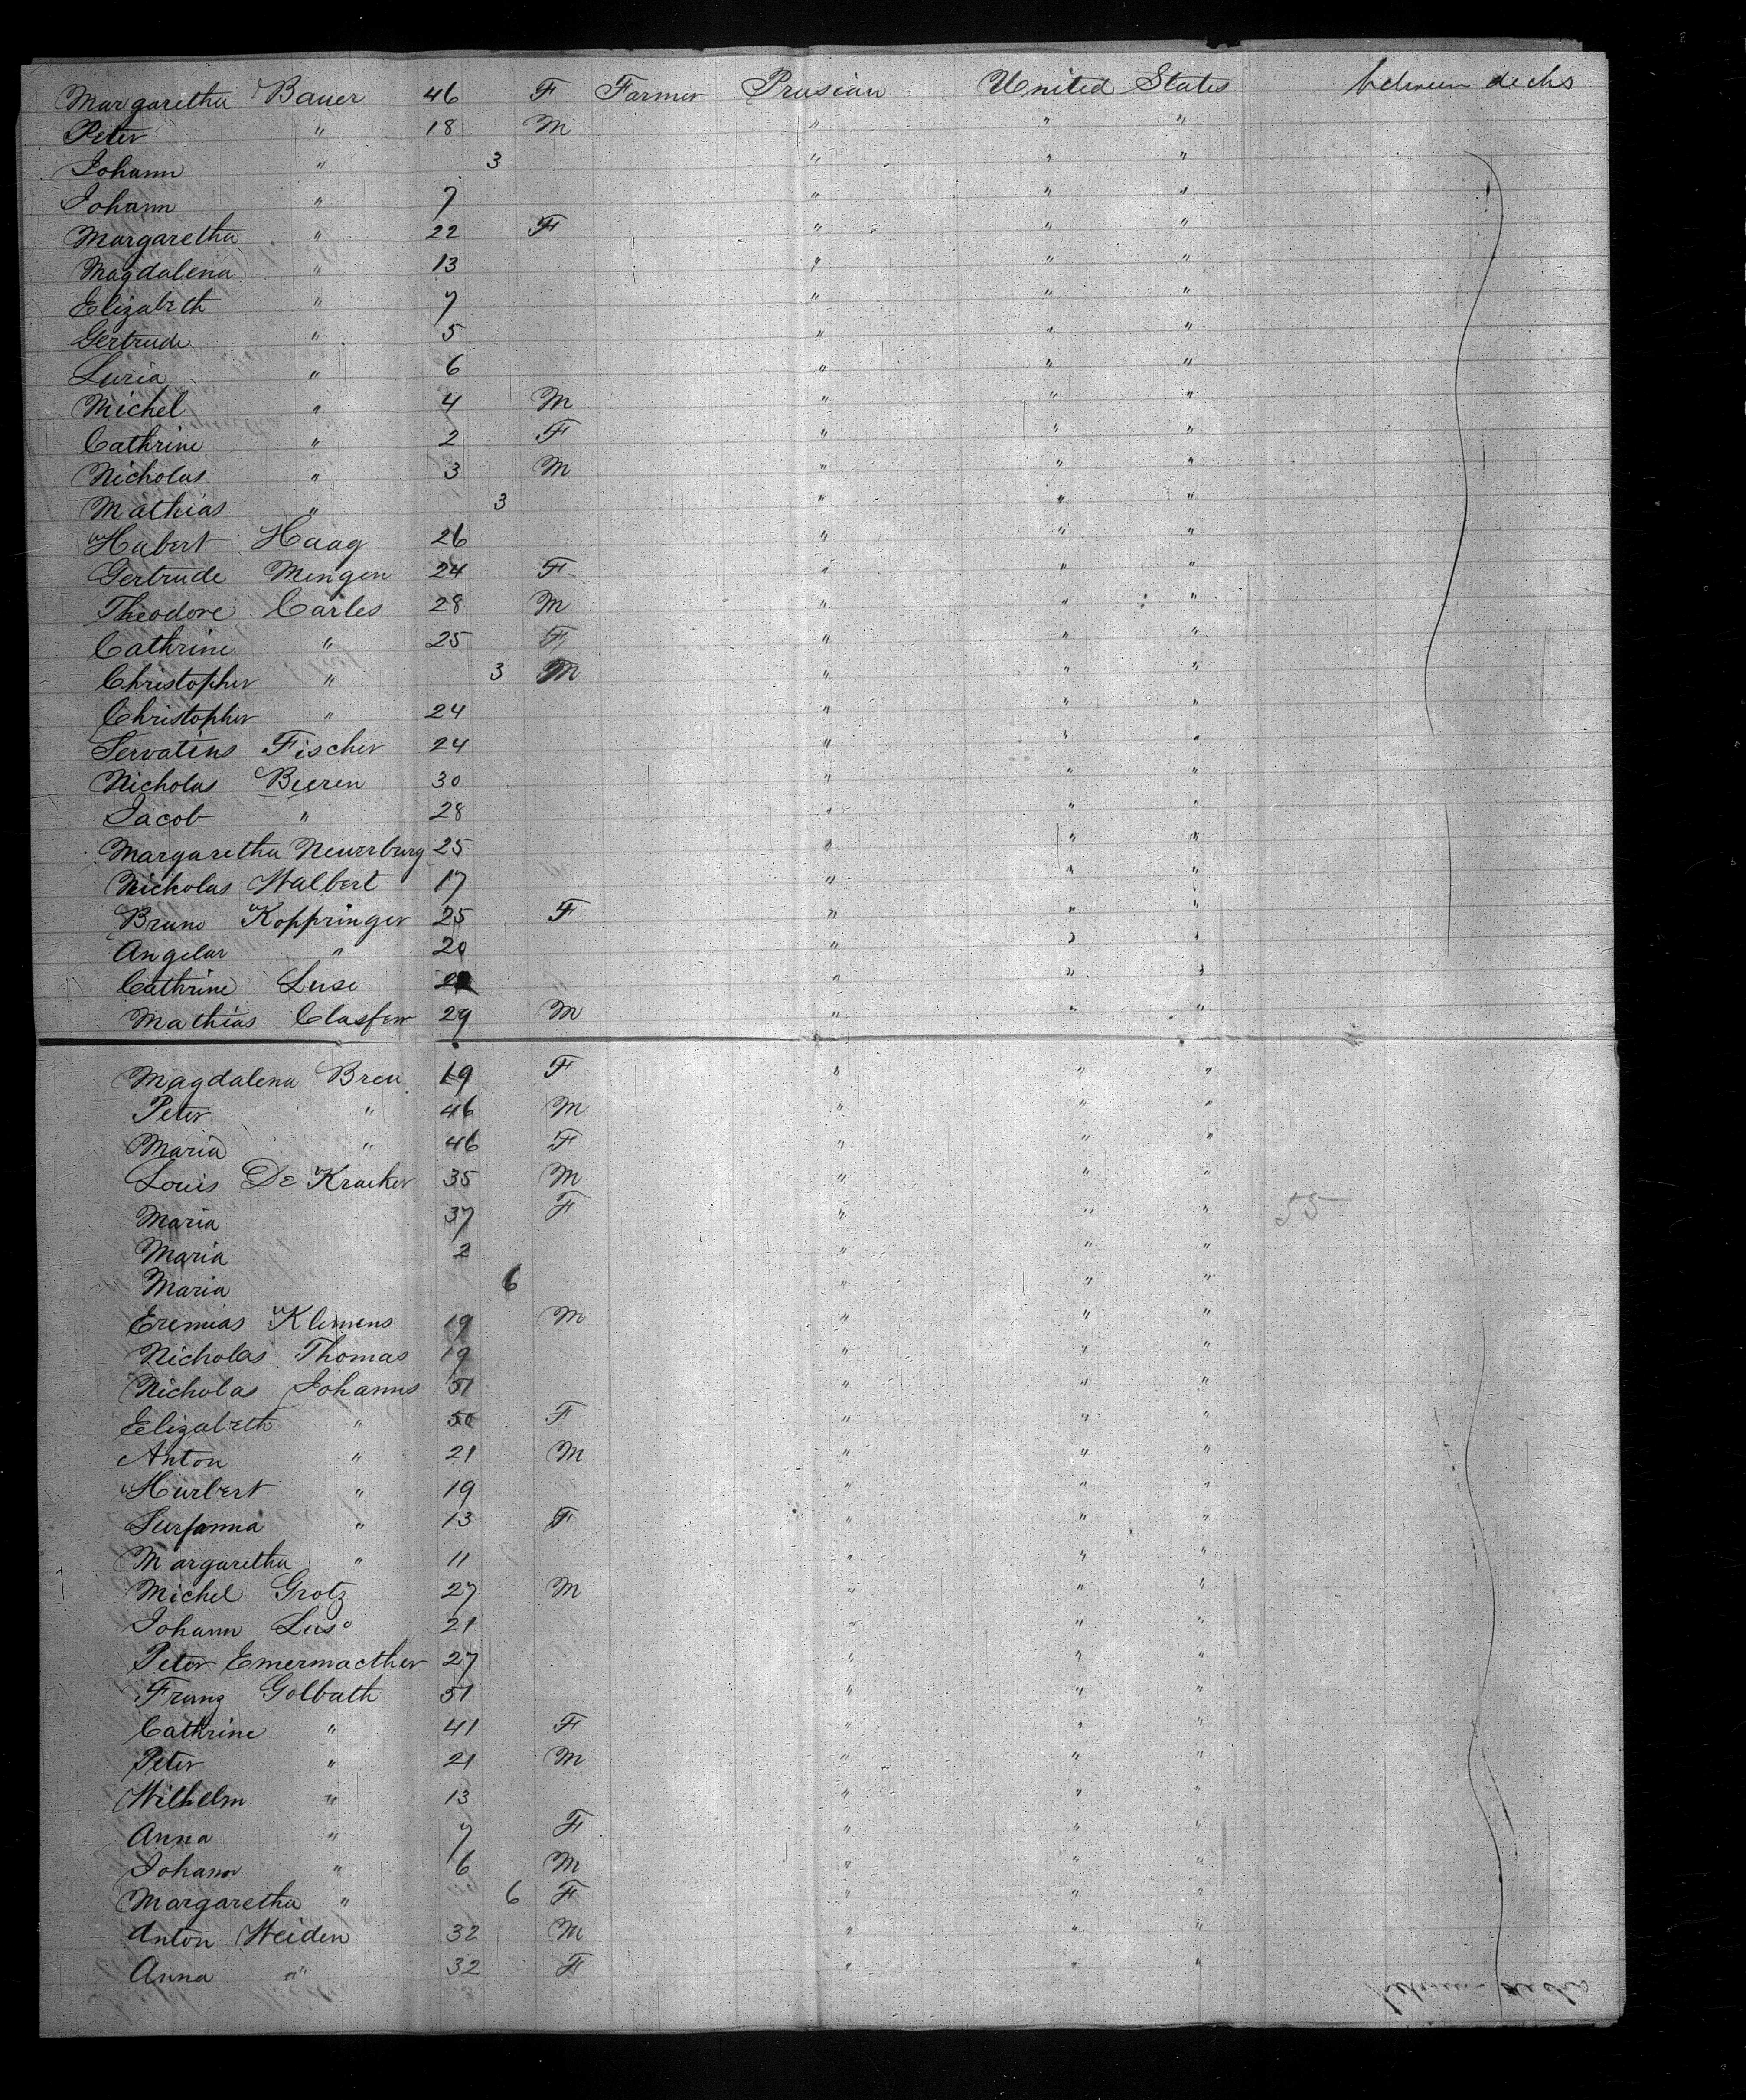 Margaretha Bauer 46 F Farmer Prusian United States between decks
Peter " 18 M " " "
Johann " 3 " " "
Johann " 7 " " "
Margaretha " 22 F " " "
Magdalena " 13 " " "
Elizabeth " 7 " " "
Gertrude " 5 " " "
Luria " 6 " " "
Michel " 4 M " " "
Cathrine " 2 F " " "
Nicholas " 3 M " " "
Mathias " 3 " " "
Hubert Haag 26 " " "
Gertrude Mengen 24 F " " "
Theodore Carles 28 M " " "
Cathrine " 25 F " " "
Christopher " 3 M " " "
Christopher " 24 " " "
Servatins Fischer 24 " " "
Nicholas Bieren 30 " " "
Jacob " 28 " " "
Margaretha Neuerburg 25 " " "
Nicholas Walbert 17 " " "
Bruno Koppringer 25 F " " "
Angelar " 20 " " "
Cathrine Luse " " "
Mathias Clasfen 29 M " " "
Magdalena Breu 19 F " " "
Peter " 46 M " " "
Maria " 46 F " " "
Louis De Kracker 35 M " " "
Maria 37 F " " " 55
Maria 2 " " "
Maria 6 " " "
Eremias Klemens 19 M " " "
Nicholas Thomas 19 " " "
Nicholas Johanns 51 " " "
Elizabeth " 50 F " " "
Anton " 21 M " " "
Hurbert " 19 " " "
Sursanna " 13 F " " "
Margaretha " 11 " " "
Michel Grotz 27 M " " "
Johann Luso 21 " " "
Peter Emermacther 27 " " "
Franz Golbath 51 " " "
Cathrine " 41 F " " "
Peter " 21 M " " "
Wilhelm " 13 " " "
Anna " 7 F " " "
Johann " 6 M " " "
Margaretha " 6 F " " "
Anton Weiden 32 M " " "
Anna " 32 F " " "